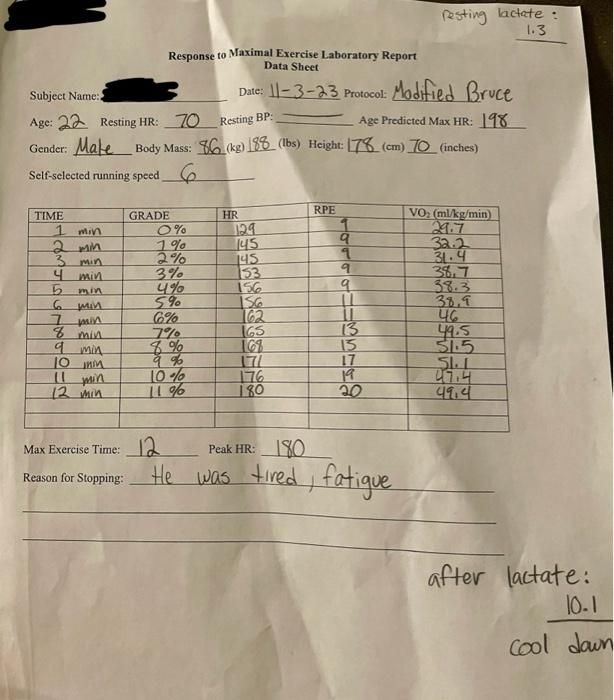 resting lactate :
1.3
Response to Maximal Exercise Laboratory Report
Data Sheet
Subject Name: Date: 11-3-23 Protocol: Modified Bruce
Age: 22 Resting HR: 70 Resting BP: Age Predicted Max HR: 198
Gender: Male Body Mass: 86 (kg) 188 (lbs) Height: 178 (cm) 70 (inches)
Self-selected running speed 6
TIME GRADE HR RPE VO₂ (ml/kg/min)
1 min 0% 129 9 29.7
2 min 1% 145 9 32.2
3 min 2% 145 9 31.4
4 min 3% 153 9 38.7
5 min 4% 156 9 38.3
6 min 5% 156 11 38.9
7 min 6% 162 11 46
8 min 7% 165 13 49.5
9 min 8% 168 15 51.5
10 min 9% 171 17 51.1
11 min 10% 176 19 47.4
12 min 11% 180 20 49.4
Max Exercise Time: 12 Peak HR: 180
Reason for Stopping: He was tired, fatigue
after lactate:
10.1
cool down